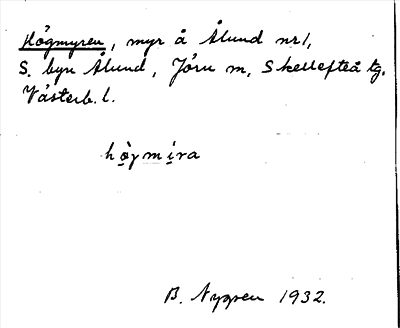 Högmyren, myr å Ålund nr1,
S. byn Ålund, Jörn m, Skellefteå tg.
Västerb. l.
hò̤γmi̤ra
B. Nygren 1932.